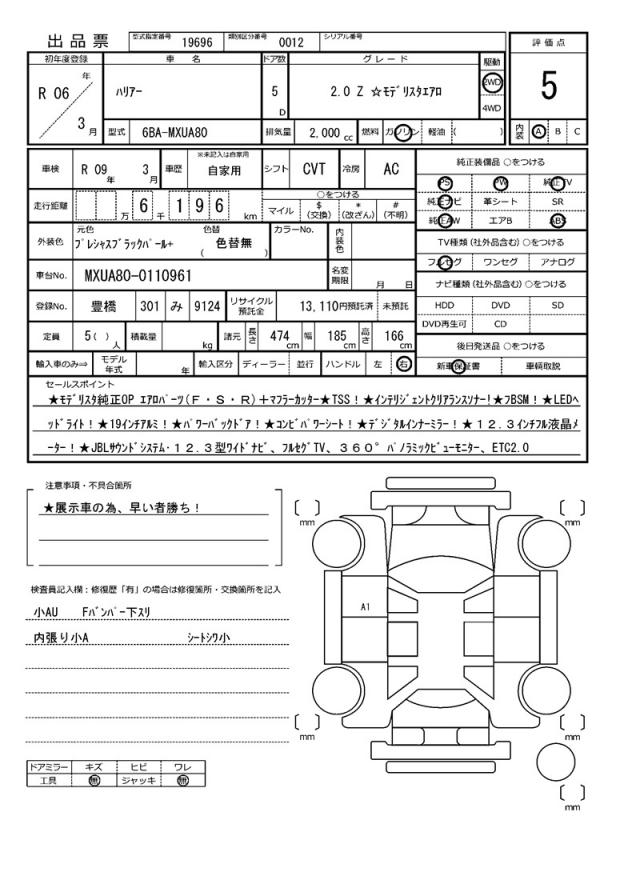 出品票 型式指定番号 19696 類別区分番号 0012 シリアル番号
初年度登録 車 名 ドア数 グレード 駆動 評価点
R 06 年 3 月 ﾊﾘｱｰ 5 D 2.0 Z ☆ﾓﾃﾞﾘｽﾀｴｱﾛ 2WD 4WD 5
型式 6BA-MXUA80 排気量 2,000 cc 燃料 ガソリン 軽油 ( ) 内装 A B C
車検 R 09 年 3 月 車歴 ※未記入は自家用 自家用 シフト CVT 冷房 AC
純正装備品 ○をつける
PS PW 純正TV
純正ナビ 革シート SR
純正AW エアB ABS
走行距離 万 6 千 1 9 6 km
○をつける
マイル $ (交換) * (改ざん) # (不明)
外装色 元色 ﾌﾟﾚｼｬｽﾌﾞﾗｯｸﾊﾟｰﾙ+ 色替 ( 色替無 ) カラーNo. 内装色
TV種類 (社外品含む) ○をつける
フルセグ ワンセグ アナログ
車台No. MXUA80-0110961 名変期限 月 日
ナビ種類 (社外品含む) ○をつける
HDD DVD SD
DVD再生可 CD
登録No. 豊橋 301 み 9124 リサイクル預託金 13,110円預託済 未預託
定員 5( ) 人 積載量 kg 諸元 長さ 474 cm 幅 185 cm 高さ 166 cm
後日発送品 ○をつける
新車保証書 車輌取説
輸入車のみ⇒ モデル年式 年 輸入区分 ディーラー 並行 ハンドル 左 右
セールスポイント
★ﾓﾃﾞﾘｽﾀ純正OP ｴｱﾛﾊﾟｰﾂ(Ｆ・Ｓ・Ｒ)＋ﾏﾌﾗｰｶｯﾀｰ★TSS！★ｲﾝﾃﾘｼﾞｪﾝﾄｸﾘｱﾗﾝｽｿﾅｰ!★ﾌBSM！★LEDﾍ
ｯﾄﾞﾗｲﾄ！★19ｲﾝﾁｱﾙﾐ！★ﾊﾟﾜｰﾊﾞｯｸﾄﾞｱ！★ｺﾝﾋﾞﾊﾟﾜｰｼｰﾄ！★ﾃﾞｼﾞﾀﾙｲﾝﾅｰﾐﾗｰ！★１２.３ｲﾝﾁﾌﾙ液晶ﾒ
ｰﾀｰ！★JBLｻｳﾝﾄﾞｼｽﾃﾑ・１２.３型ﾜｲﾄﾞﾅﾋﾞ、ﾌﾙｾｸﾞTV、３６０°ﾊﾟﾉﾗﾐｯｸﾋﾞｭｰﾓﾆﾀｰ、ETC2.0
注意事項・不具合箇所
★展示車の為、早い者勝ち！
検査員記入欄：修復歴「有」の場合は修復箇所・交換箇所を記入
小AU Fﾊﾞﾝﾊﾟｰ下ｽﾘ
内張り小A ｼｰﾄｼﾜ小
A1
mm
mm
mm
mm
mm
ドアミラー キズ ヒビ ワレ
工具 無 ジャッキ 無